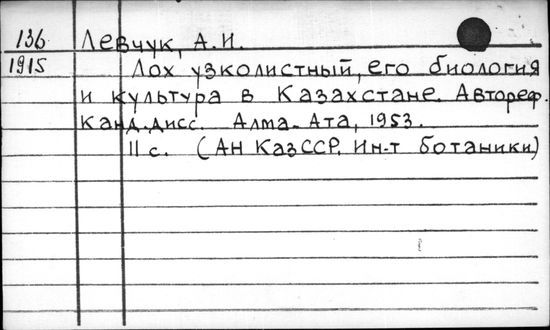 136 Левчук, А.И.
1915 Лох узколистный, его биология
и культура в Казахстане. Автореф.
канд.дисс. Алма-Ата, 1953.
11 с. (АН КазССР. Ин-т ботаники)